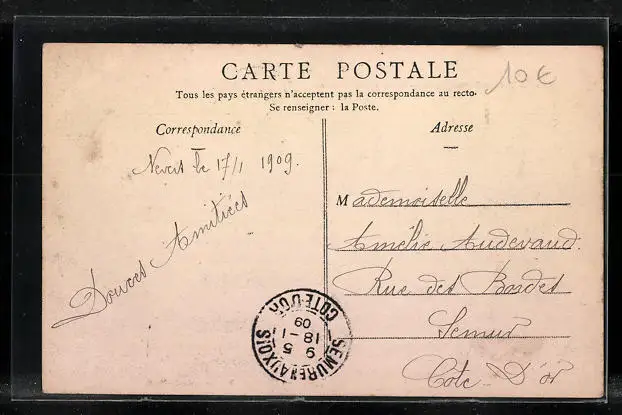 CARTE POSTALE
10 €
Tous les pays étrangers n'acceptent pas la correspondance au recto.
Se renseigner : la Poste.
Correspondance
Adresse
le 17/1 1909.
Douces Amitiés
Mademoiselle
Amélie Audevaud.
Rue des Bordes
Semur
Côte-D'or
SEMUR-EN-AUXOIS
COTE-D'OR
9 5
18 - 1
09